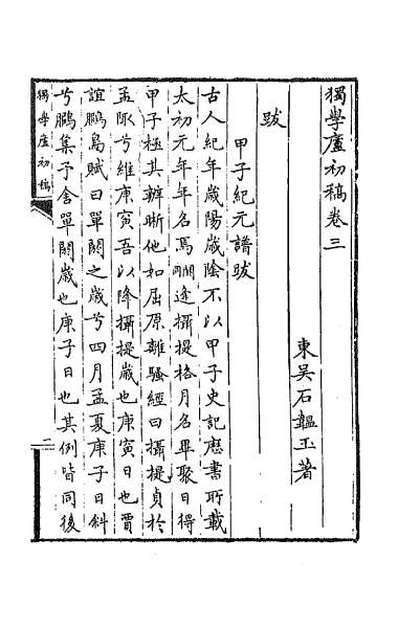 獨學廬初稿卷三
東吳石韞玉著
跋
甲子紀元譜跋
古人紀年歲陽歲陰不以甲子史記厯書所載
太初元年年名焉逢攝提格月名畢聚日得
甲子極其辨晰他如屈原離騷經曰攝提貞於
孟陬兮維庚寅吾以降攝提歲也庚寅日也賈
誼鵩鳥賦曰單閼之歲兮四月孟夏庚子日斜
兮鵩集予舍單閼歲也庚子日也其例皆同後
獨學廬初稿